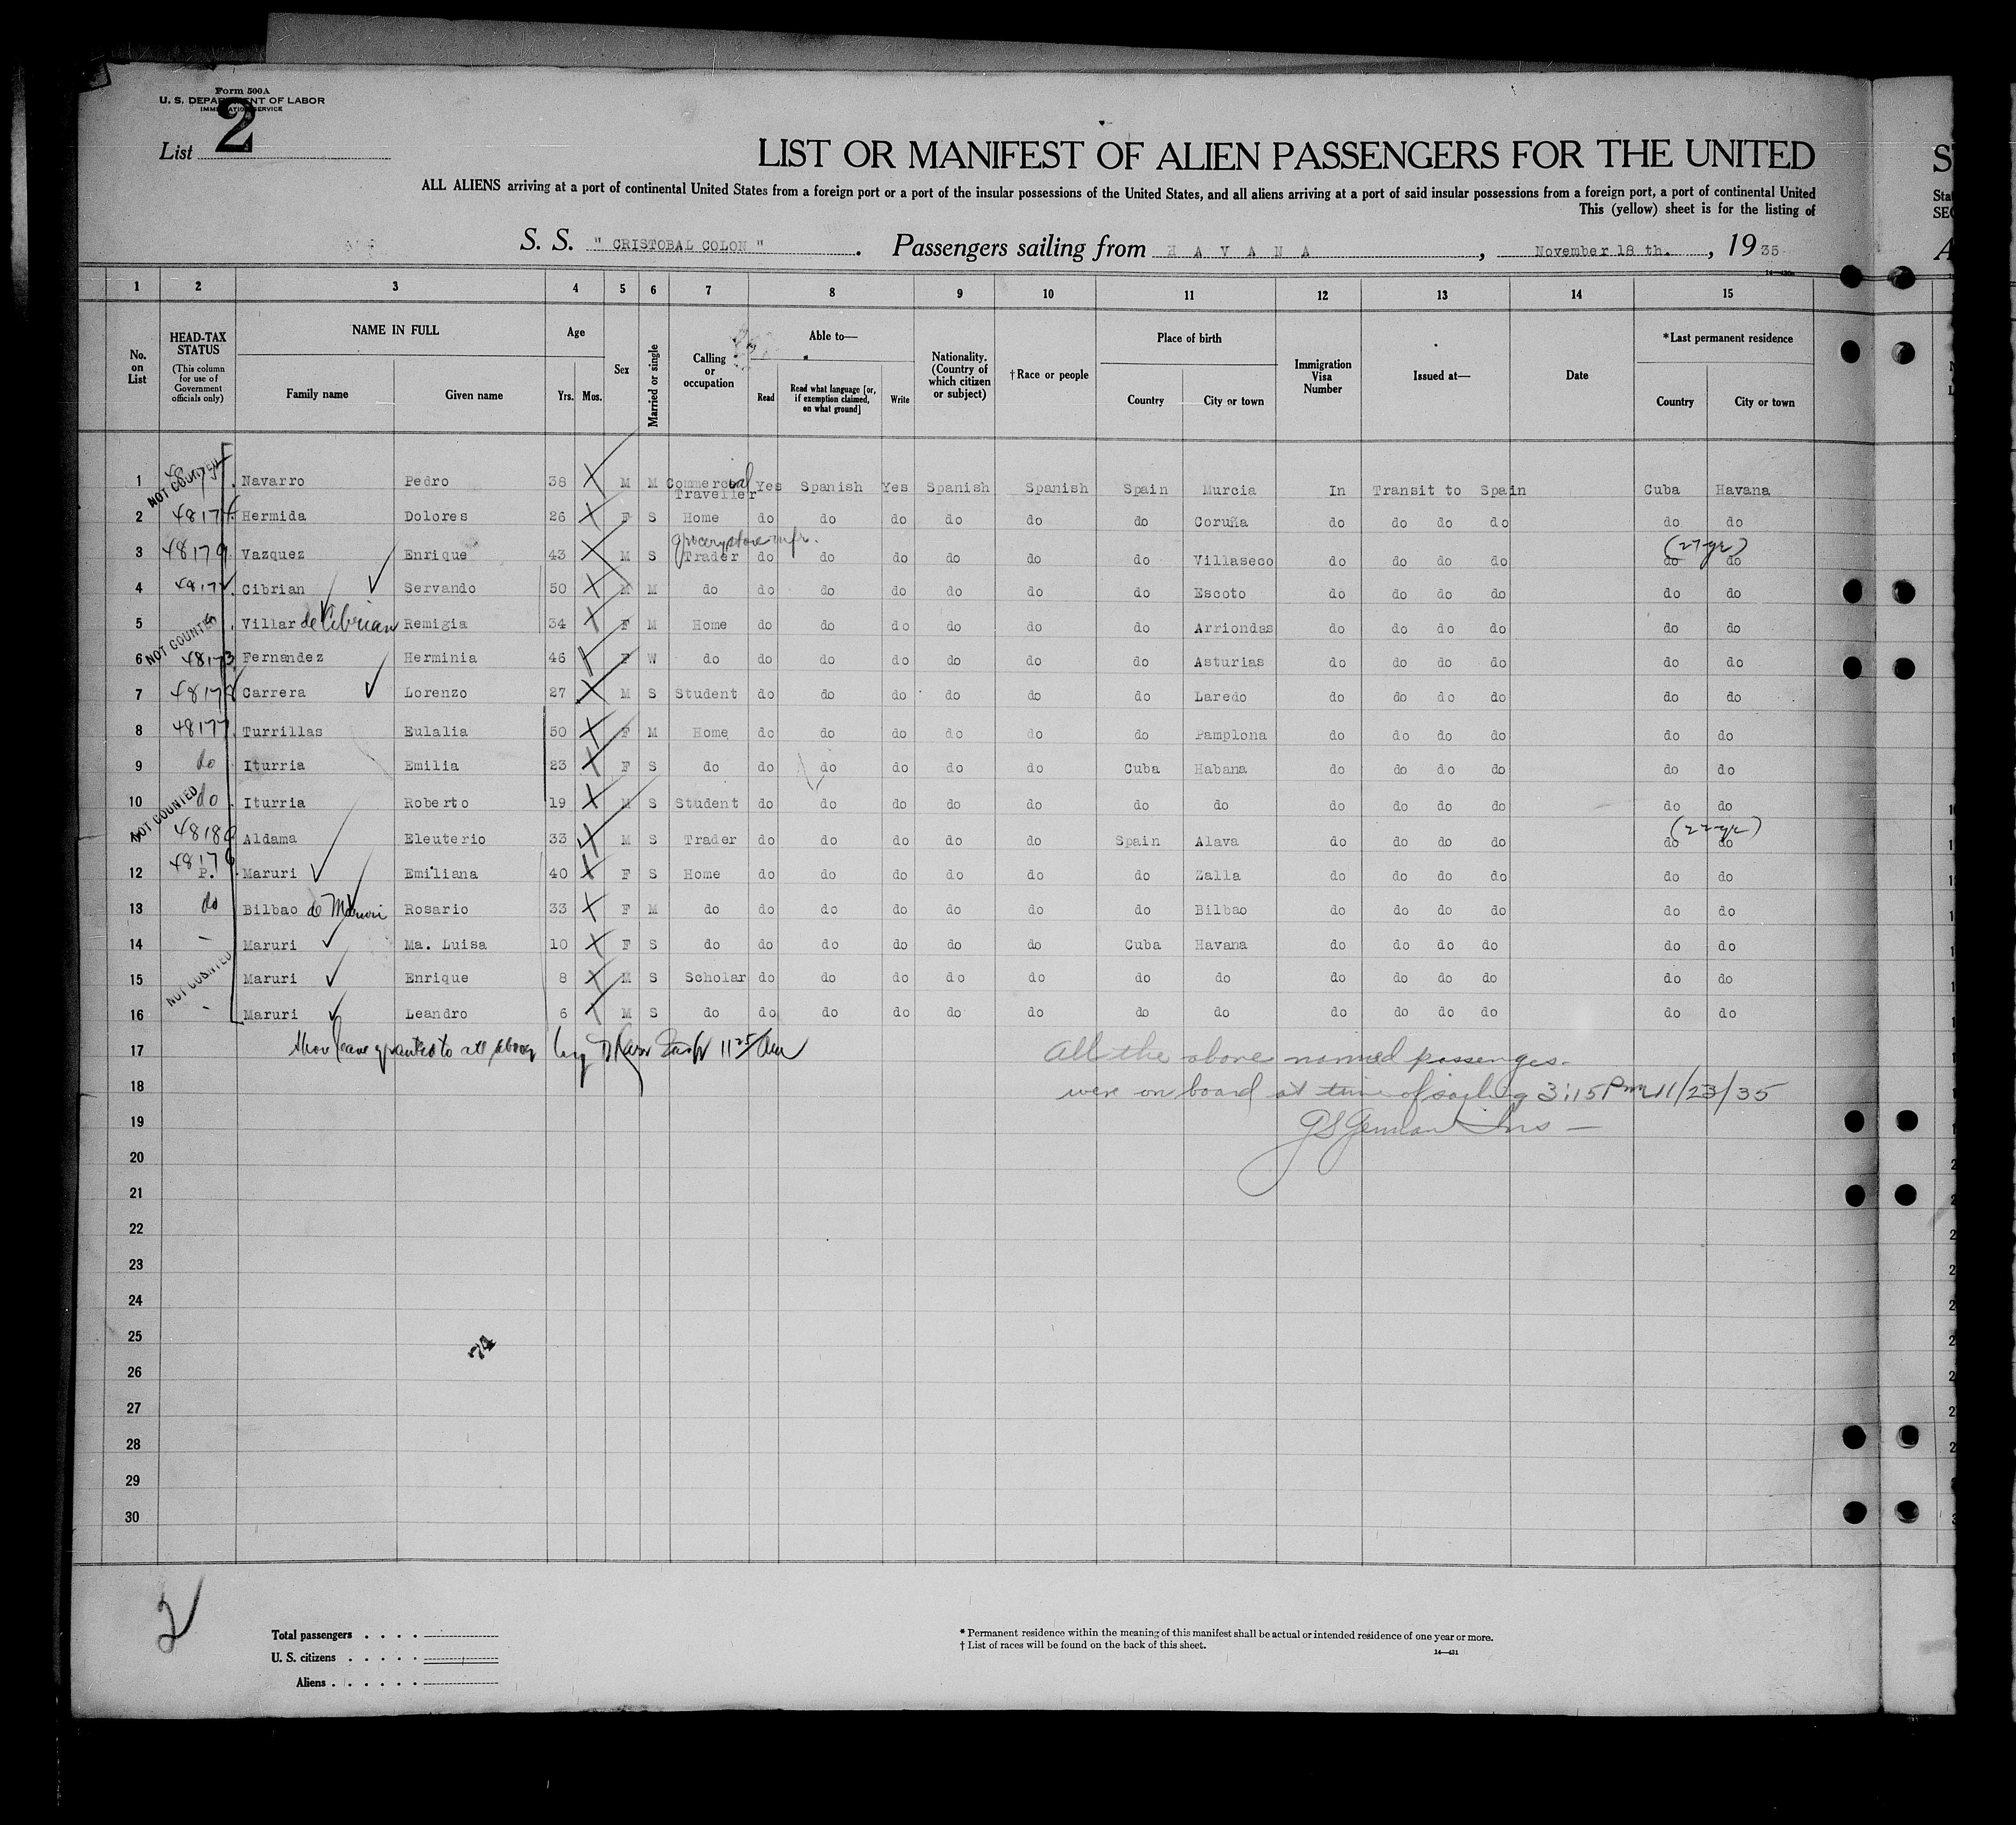 Form 500A
U. S. DEPARTMENT OF LABOR
IMMIGRATION SERVICE
List 2
LIST OR MANIFEST OF ALIEN PASSENGERS FOR THE UNITED
ALL ALIENS arriving at a port of continental United States from a foreign port or a port of the insular possessions of the United States, and all aliens arriving at a port of said insular possessions from a foreign port, a port of continental United
This (yellow) sheet is for the listing of
S. S. " CRISTOBAL COLON " . Passengers sailing from H A V A N A , November 18 th. , 1935
1 2 3 4 5 6 7 8 9 10 11 12 13 14 15
No. on List HEAD-TAX STATUS (This column for use of Government officials only) NAME IN FULL Family name Given name Age Yrs. Mos. Sex Married or single Calling or occupation Able to— Read Read what language [or, if exemption claimed, on what ground] Write Nationality. (Country of which citizen or subject) †Race or people Place of birth Country City or town Immigration Visa Number Issued at— Date *Last permanent residence Country City or town
1 NOT COUNTED Navarro Pedro 38 M M Commercial Traveller Yes Spanish Yes Spanish Spanish Spain Murcia In Transit to Spain Cuba Havana
2 Hermida Dolores 26 F S Home do do do do do do Coruña do do do do do do
3 48179 Vazquez Enrique 43 M S grocery store Trader do do do do do do Villaseco do do do do (27 yr) do do
4 Cibrian Servando 50 M M do do do do do do do Escoto do do do do do do
5 NOT COUNTED Villar de Cibrian Remigia 34 F M Home do do do do do do Arriondas do do do do do do
6 48173 Fernandez Herminia 46 F W do do do do do do do Asturias do do do do do do
7 48178 Carrera Lorenzo 27 M S Student do do do do do do Laredo do do do do do do
8 48177 Turrillas Eulalia 50 F M Home do do do do do do Pamplona do do do do do do
9 do Iturria Emilia 23 F S do do do do do do Cuba Habana do do do do do do
10 NOT COUNTED do Iturria Roberto 19 M S Student do do do do do do do do do do do do do
48180 Aldama Eleuterio 33 M S Trader do do do do do Spain Alava do do do do (22 yr) do do
12 48176 P. Maruri Emiliana 40 F S Home do do do do do do Zalla do do do do do do
13 do Bilbao de Maruri Rosario 33 F M do do do do do do do Bilbao do do do do do do
14 - Maruri Ma. Luisa 10 F S do do do do do do Cuba Havana do do do do do do
15 NOT COUNTED Maruri Enrique 8 M S Scholar do do do do do do do do do do do do do
16 - Maruri Leandro 6 M S do do do do do do do do do do do do do do
17 Shore leave granted to all above by 11 25/Am All the above named passengers
18 were on board at time of sailing 3:15 Pm 11/23/35
19 GS German Ins —
20
21
22
23
24
25
26
27
28
29
30
2
Total passengers
U. S. citizens
Aliens
* Permanent residence within the meaning of this manifest shall be actual or intended residence of one year or more.
† List of races will be found on the back of this sheet.
14—431